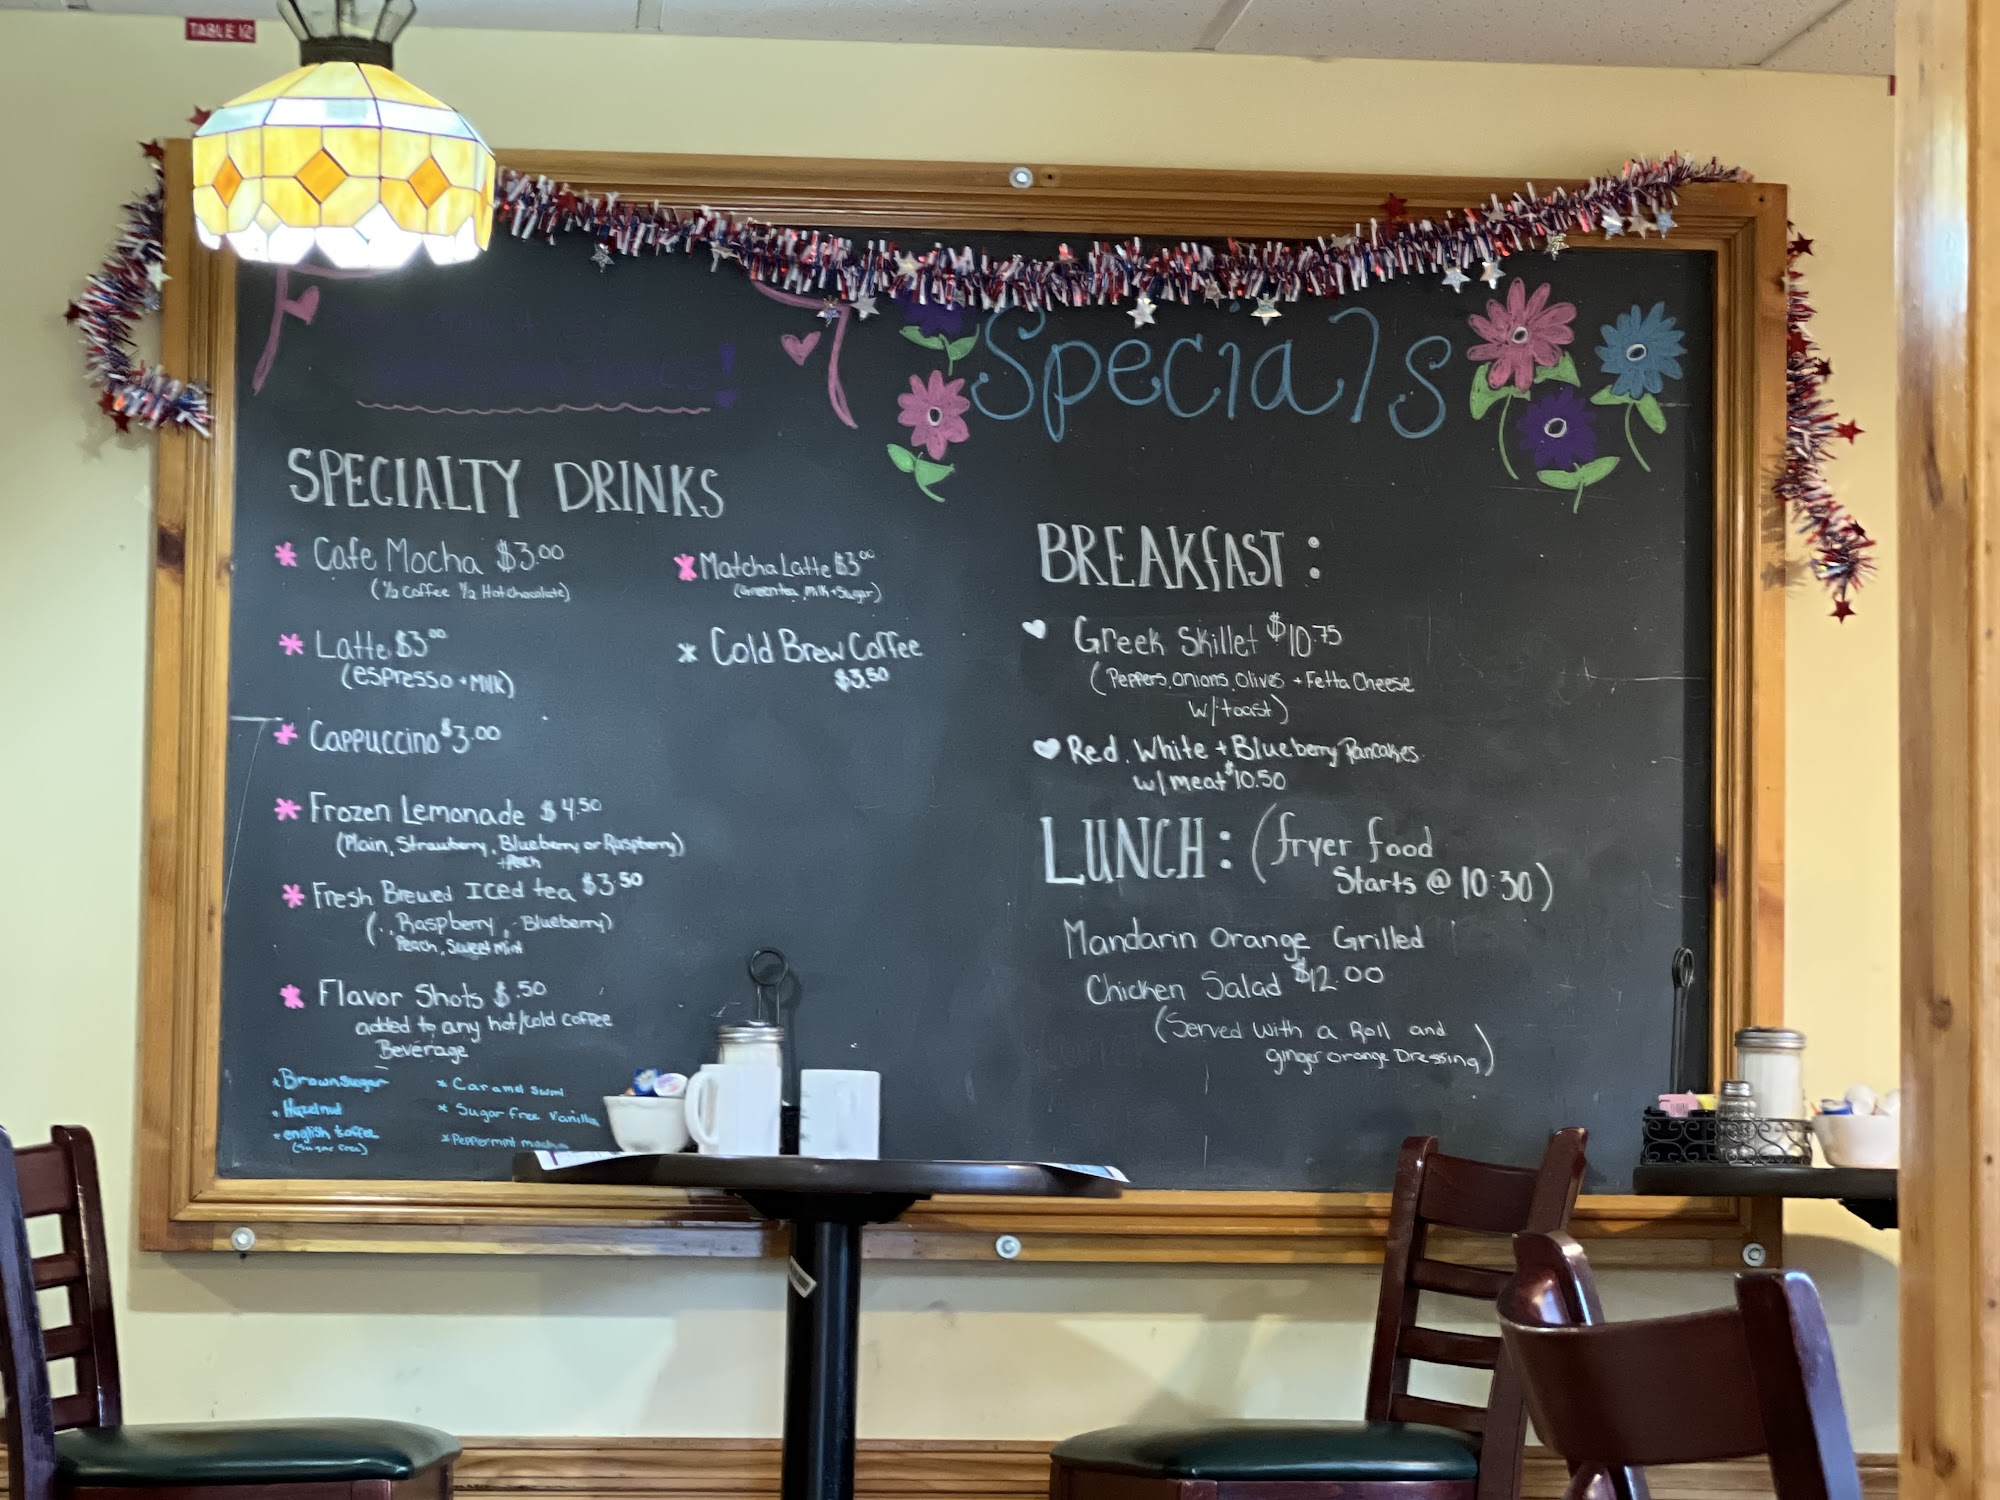 TABLE 12
SPECIALTY DRINKS
* Cafe Mocha $3.00
(1/2 coffee 1/2 Hot chocolate)
* Latte $3.00
(espresso + Milk)
* Cappuccino $3.00
* Frozen Lemonade $4.50
(Plain, Strawberry, Blueberry or Raspberry)
+ Peach
* Fresh Brewed Iced tea $3.50
(., Raspberry, Blueberry)
Peach, Sweet Mint
* Flavor Shots $.50
added to any hot/cold coffee
Beverage
* Brown sugar
* Hazelnut
* english toffee
(sugar free)
* Caramel swirl
* Sugar free Vanilla
* Peppermint mocha
* Matcha Latte $3.00
(Green tea, Milk + Sugar)
* Cold Brew Coffee
$3.50
Specials
BREAKFAST:
Greek Skillet $10.75
(Peppers, onions, olives + Fetta Cheese
w/ toast)
Red, White + Blueberry Pancakes
w/ meat $10.50
LUNCH: (fryer food
Starts @ 10:30)
Mandarin Orange Grilled
Chicken Salad $12.00
(Served with a Roll and
ginger orange Dressing)